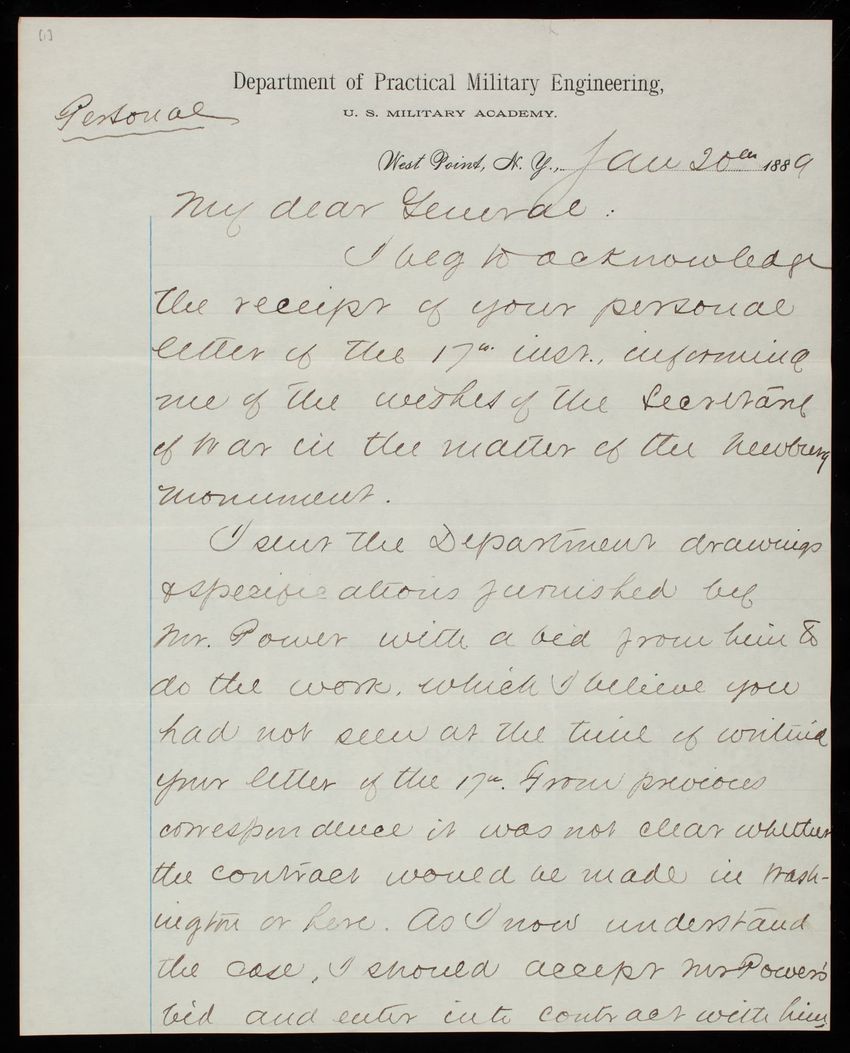 [1]
Department of Practical Military Engineering,
U. S. MILITARY ACADEMY.
Personal
West Point, N. Y., Jan 20th 1889
My dear General:
I beg to acknowledge
the receipt of your personal
letter of the 17th inst., informing
me of the wishes of the Secretary
of War in the matter of the Newburg
monument.
I sent the Department drawings
& specifications furnished by
Mr. Power with a bid from him to
do the work, which I believe you
had not seen at the time of writing
your letter of the 17th. From previous
correspondence it was not clear whether
the contract would be made in Wash-
ington or here. As I now understand
the case, I should accept Mr Power's
bid and enter into contract with him